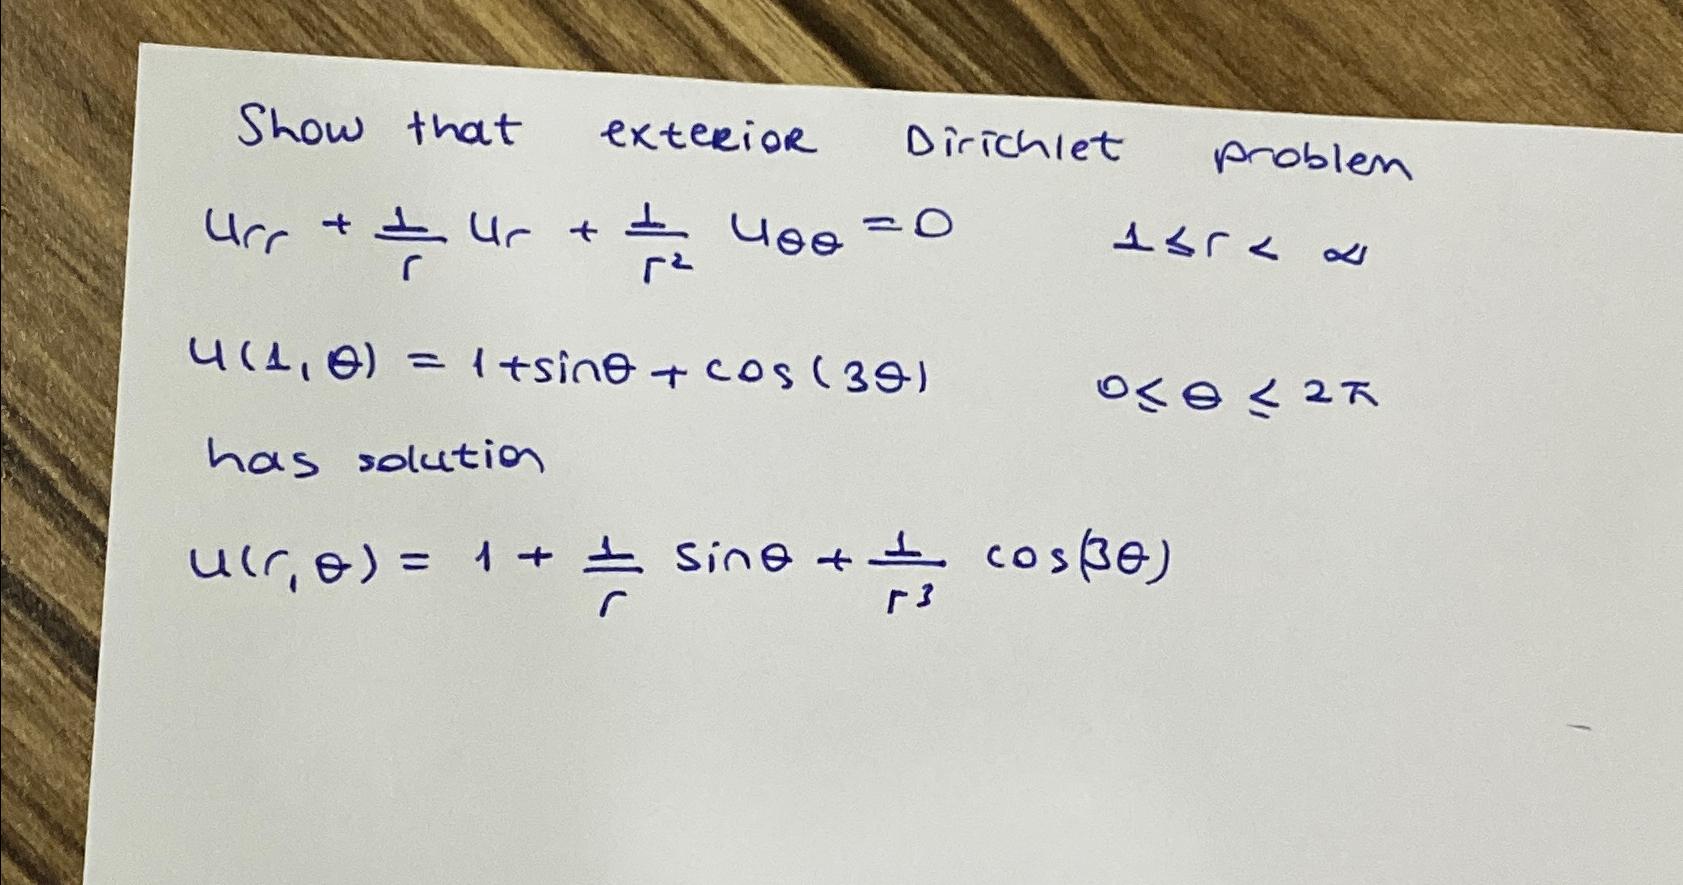 Show that exterior Dirichlet problem
u_rr + 1/r u_r + 1/r² u_θθ = 0 1 ≤ r < ∞
u(1, θ) = 1 + sinθ + cos(3θ) 0 ≤ θ ≤ 2π
has solution
u(r, θ) = 1 + 1/r sinθ + 1/r³ cos(3θ)